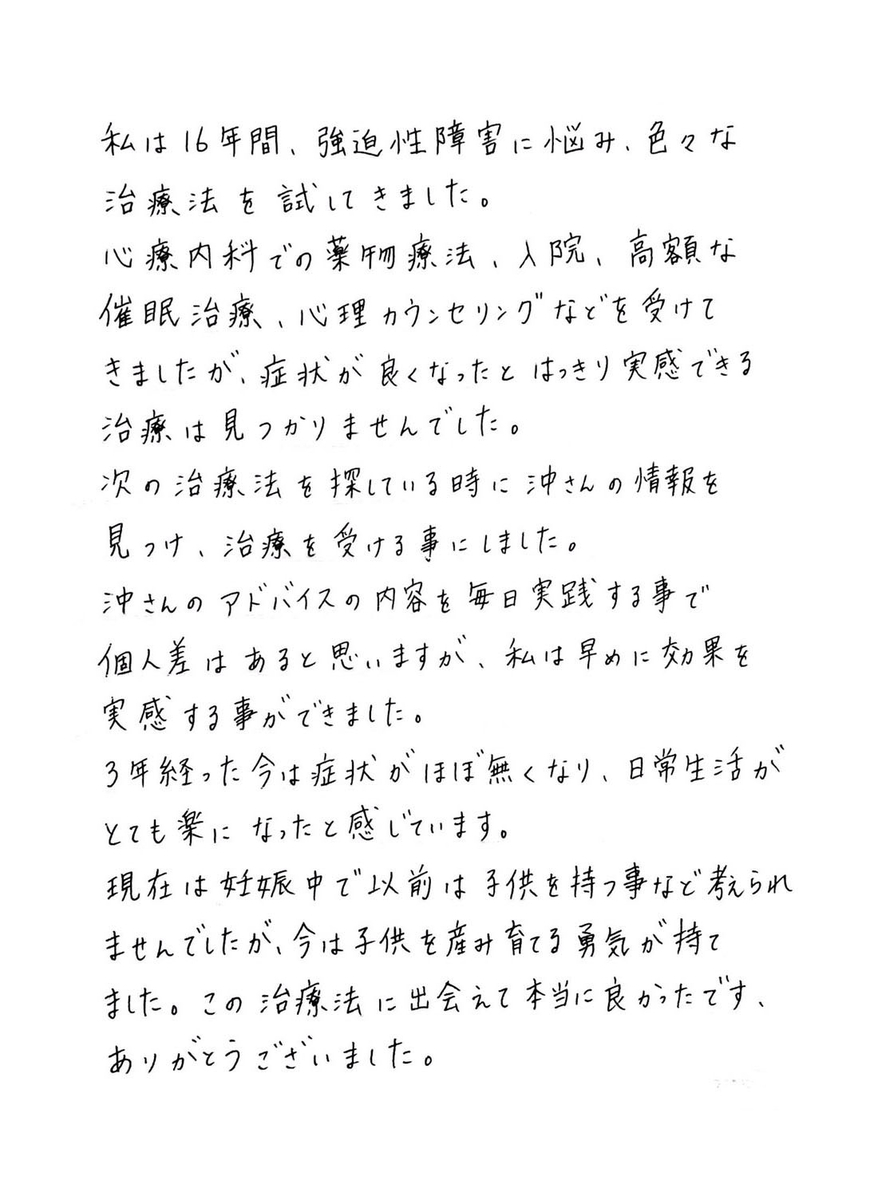 私は16年間、強迫性障害に悩み、色々な
治療法を試してきました。
心療内科での薬物療法、入院、高額な
催眠治療、心理カウンセリングなどを受けて
きましたが、症状が良くなったとはっきり実感できる
治療は見つかりませんでした。
次の治療法を探している時に沖さんの情報を
見つけ、治療を受ける事にしました。
沖さんのアドバイスの内容を毎日実践する事で
個人差はあると思いますが、私は早めに効果を
実感する事ができました。
3年経った今は症状がほぼ無くなり、日常生活が
とても楽になったと感じています。
現在は妊娠中で以前は子供を持つ事など考えられ
ませんでしたが、今は子供を産み育てる勇気が持て
ました。この治療法に出会えて本当に良かったです、
ありがとうございました。